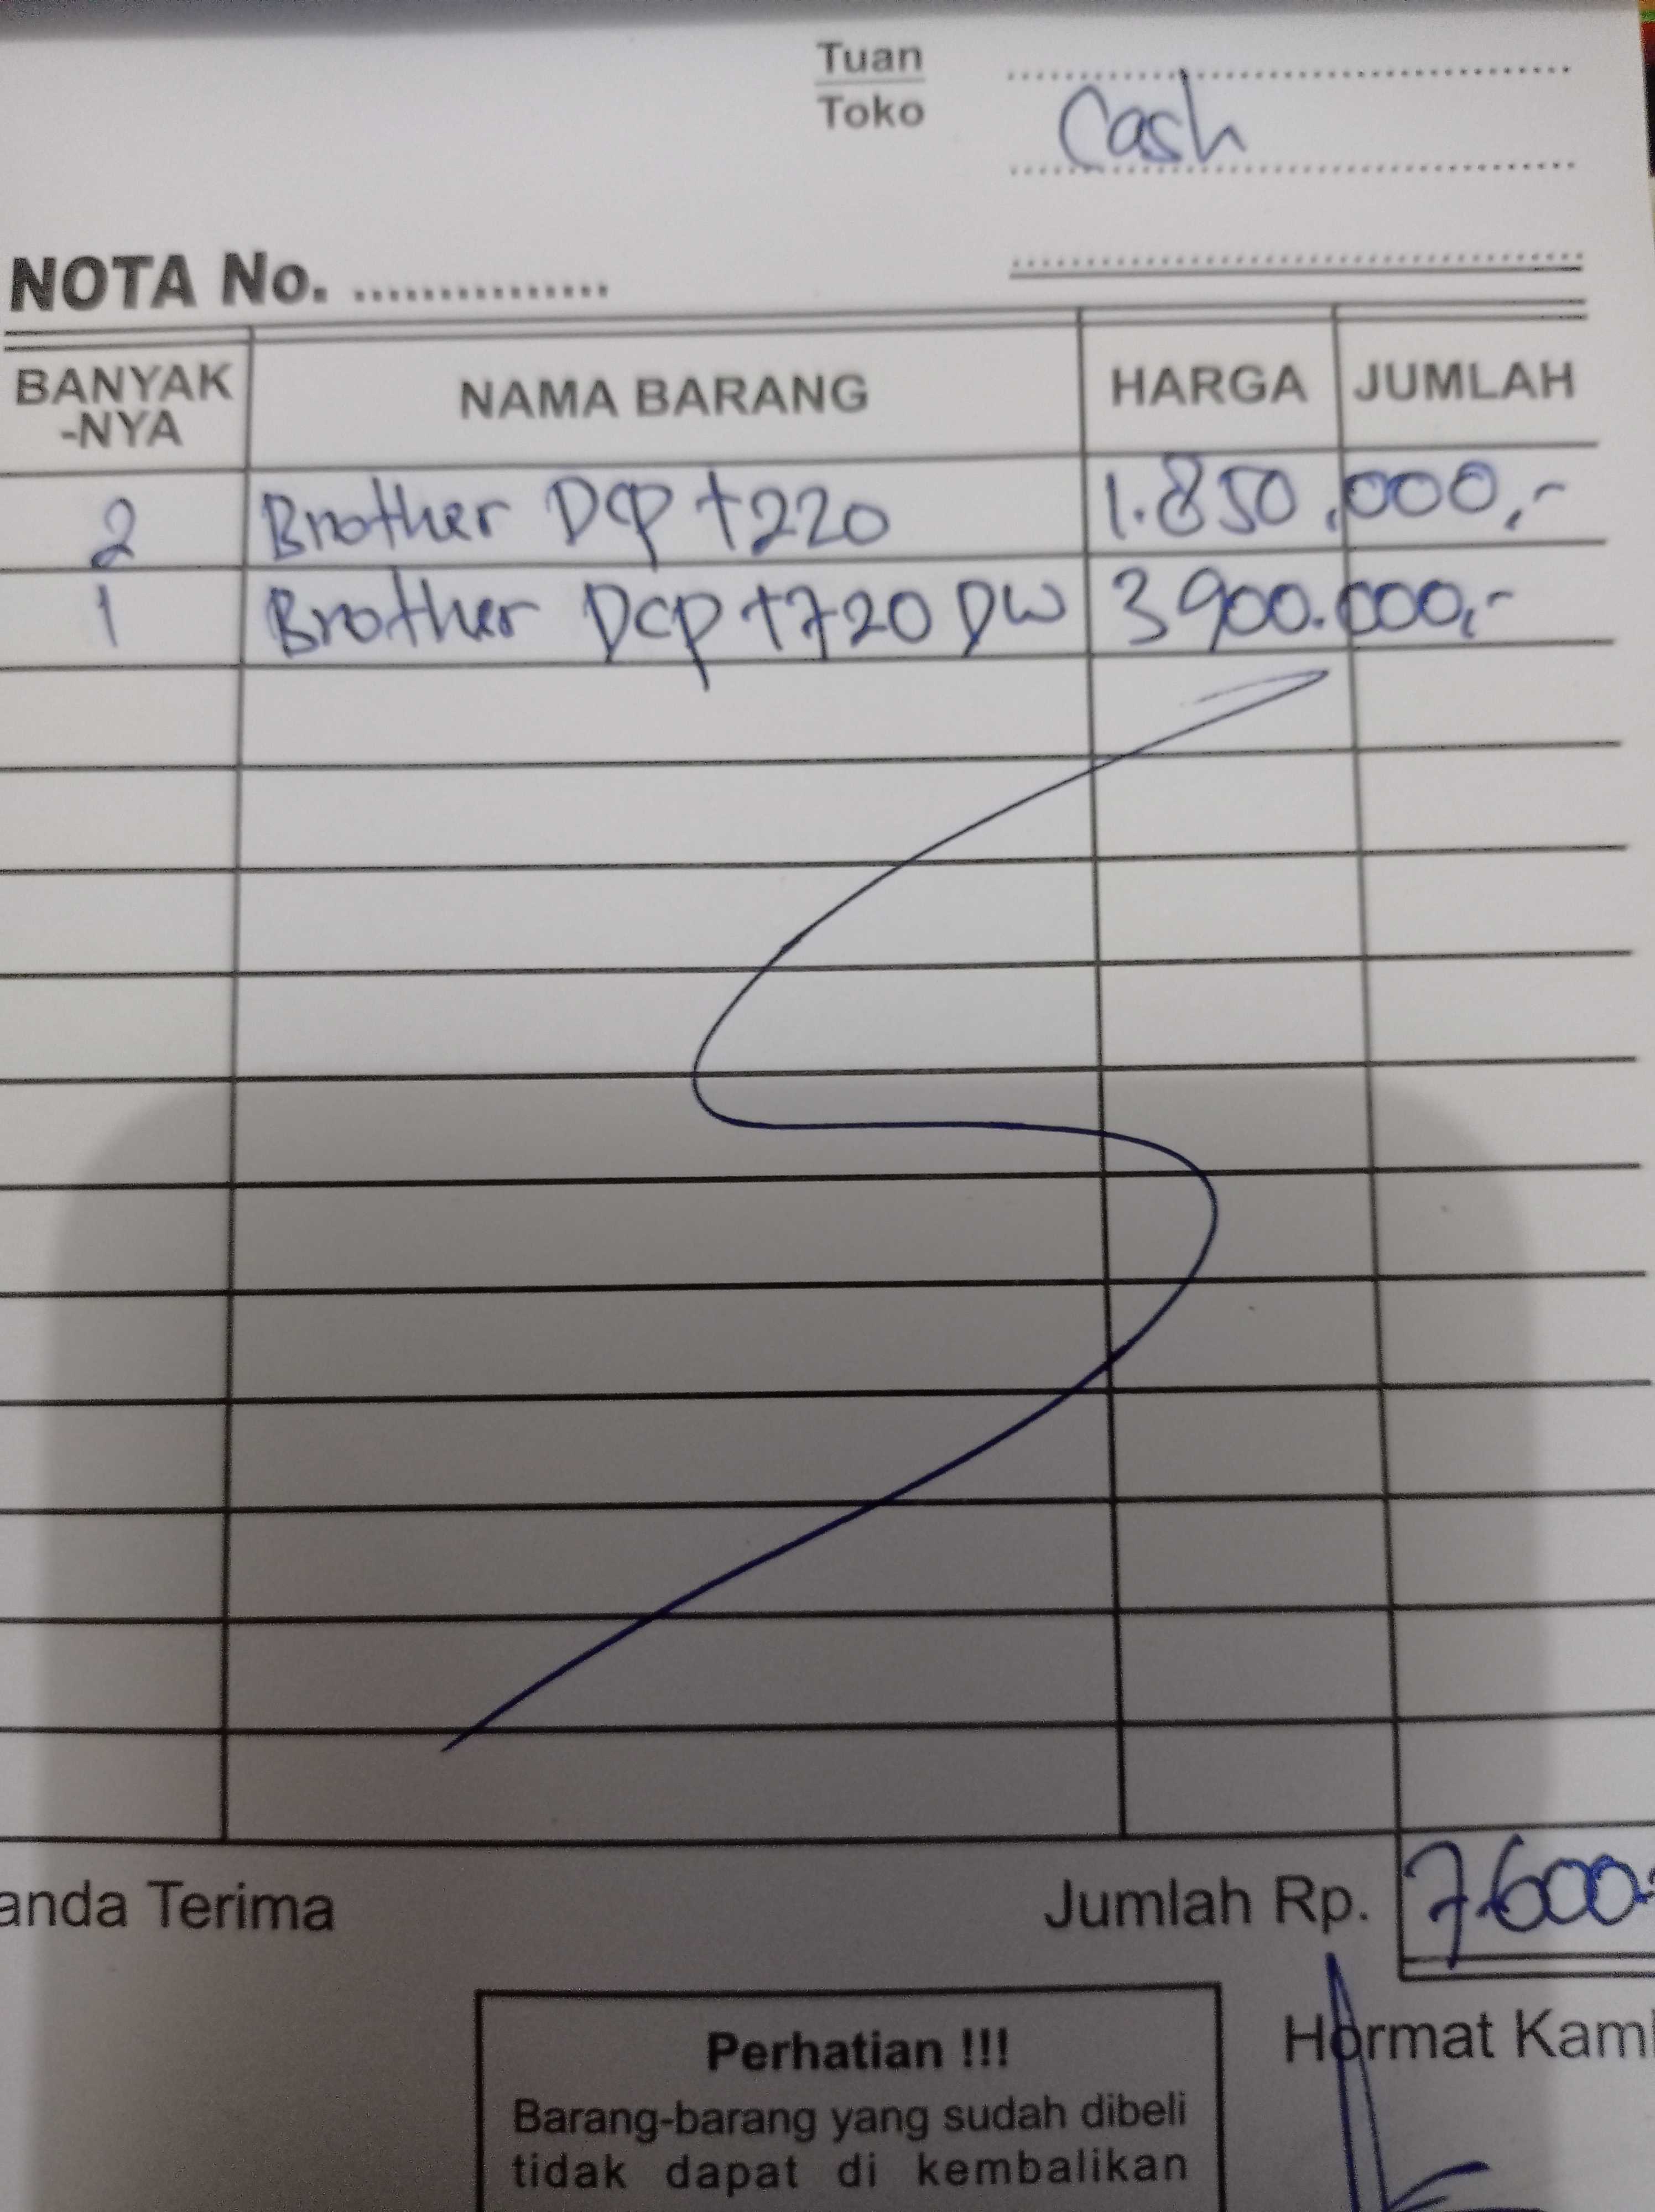 Tuan
Toko
Cash
NOTA No. ...............
BANYAK-NYA NAMA BARANG HARGA JUMLAH
2 Brother Dcp t220 1.850.000,-
1 Brother Dcp t720 DW 3 900.000,-
anda Terima Jumlah Rp. 7.600.
Perhatian !!! Hormat Kami
Barang-barang yang sudah dibeli
tidak dapat di kembalikan